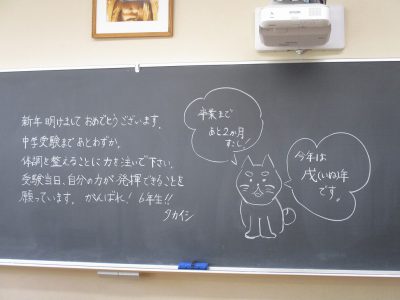 新年 明けまして おめでとうございます。
中学受験まであとわずか。
体調を整えることに力を注いで下さい。
受験当日、自分の力が発揮できることを
願っています。がんばれ！6年生!!
タカイシ
卒業まで
あと2か月
すこし！
今年は
戌(いぬ)年
です。